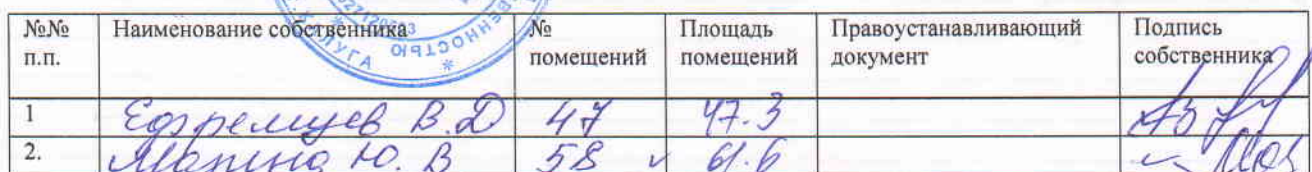 №№ п.п. Наименование собственника № помещений Площадь помещений Правоустанавливающий документ Подпись собственника
КАЛУГА * ОТВЕТСТВЕННОСТЬЮ
1 Ефремцев В.Д 47 47.3
2. Малина Ю. В 58 61.6